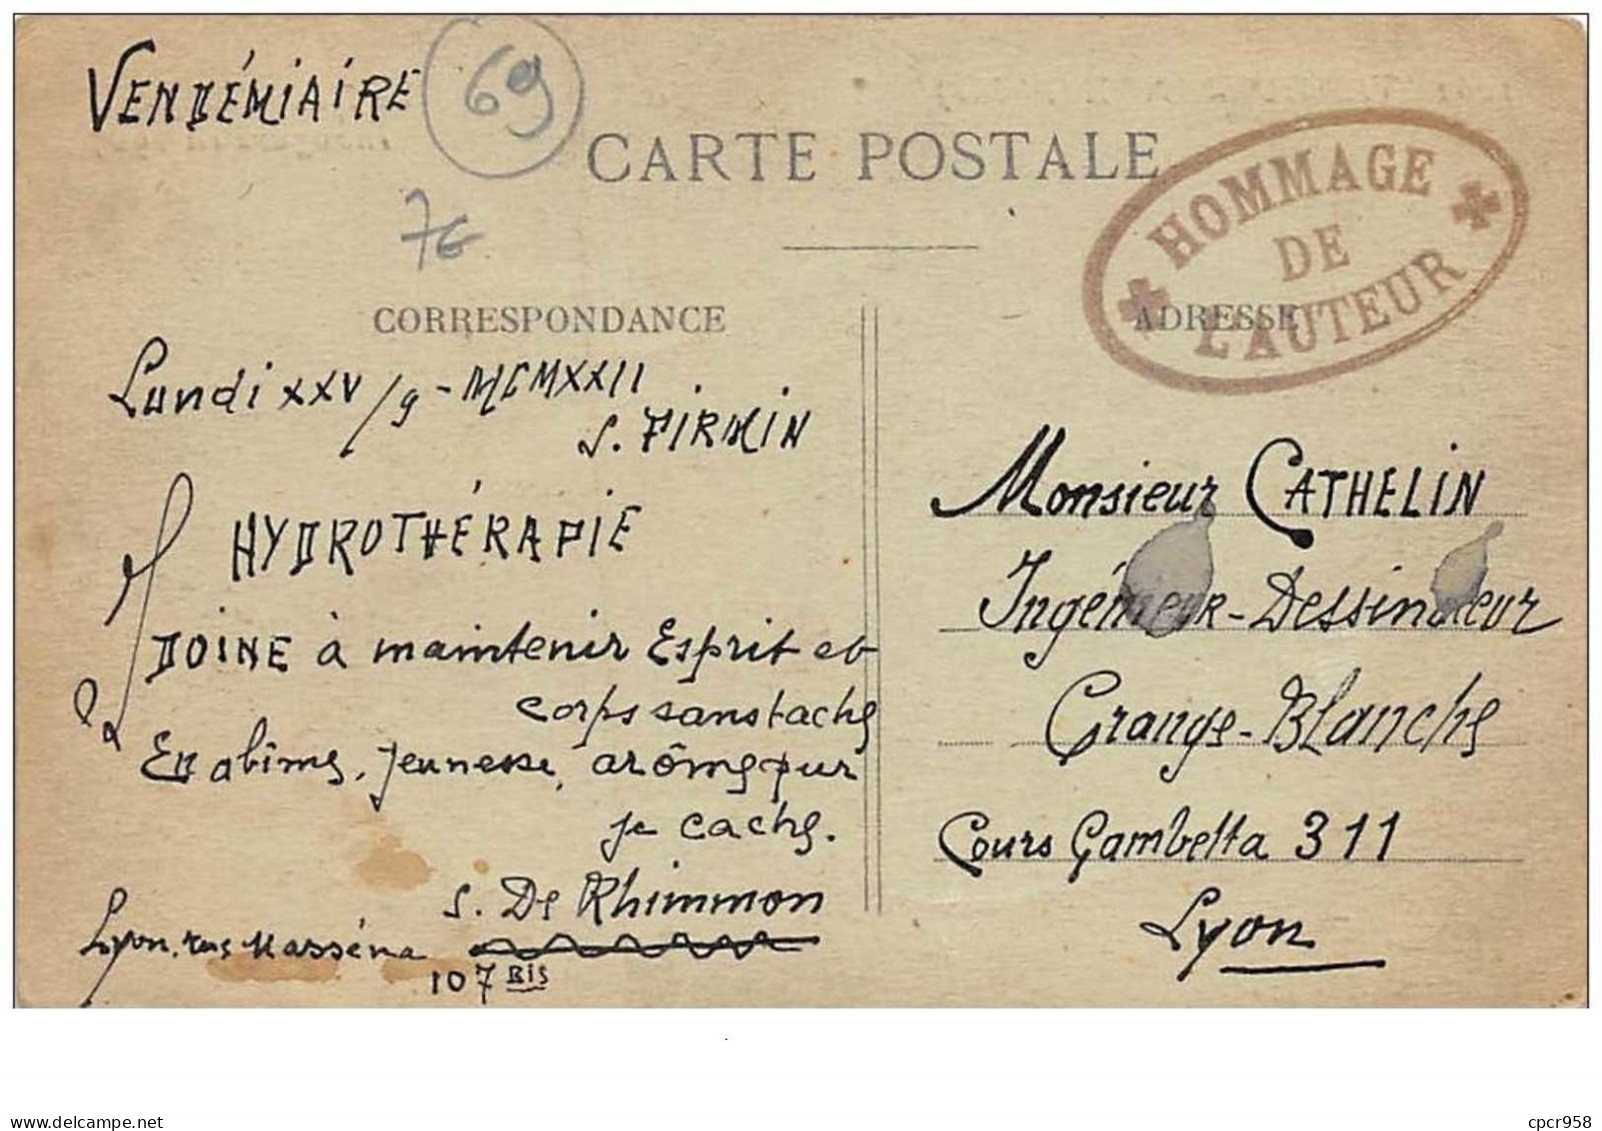 VENDÉMIAIRE
69
CARTE POSTALE
HOMMAGE
DE
L'AUTEUR
7€
CORRESPONDANCE
Lundi XXV/9-MCMXXII
S. FIRMIN
HYDROTHÉRAPIE
IDOINE à maintenir Esprit et
corps sans tache
En abîme, jeunesse, arôme pur
je cache.
S. De Rhimmon
Lyon, rue Masséna
107 BIS
ADRESSE
Monsieur CATHELIN
Ingénieur-Dessinateur
Grange-Blanche
Cours Gambetta 311
Lyon
delcampe.net
cpcr958